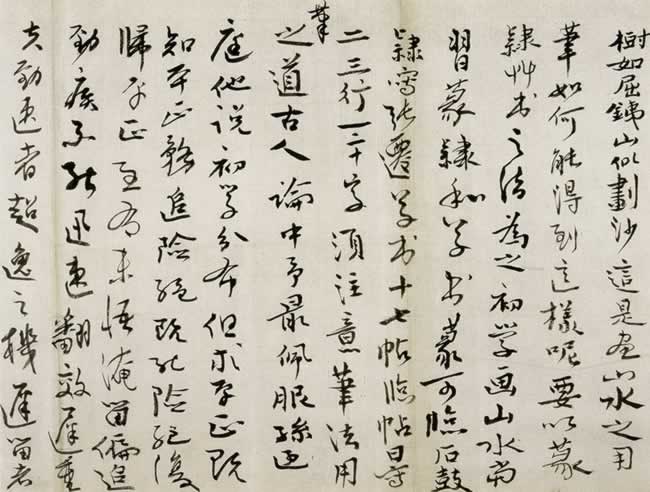 樹如屈鐵山似劃沙這是画山水之用
筆如何能得到這樣呢要以篆
隸艸书之法為之初学画山水
習篆隸和草书篆可臨石鼓
隸寫張遷草书十七帖臨帖日寫
二三行一二十字須注意筆法用
筆之道古人論中予最佩服孫过
庭他说初学分布但求平正既
知平正務追險絕既能險絕復
歸平正至有未悟淹留偏追
勁疾不能迅速翻效遲重
夫勁速者超逸之機遲留者